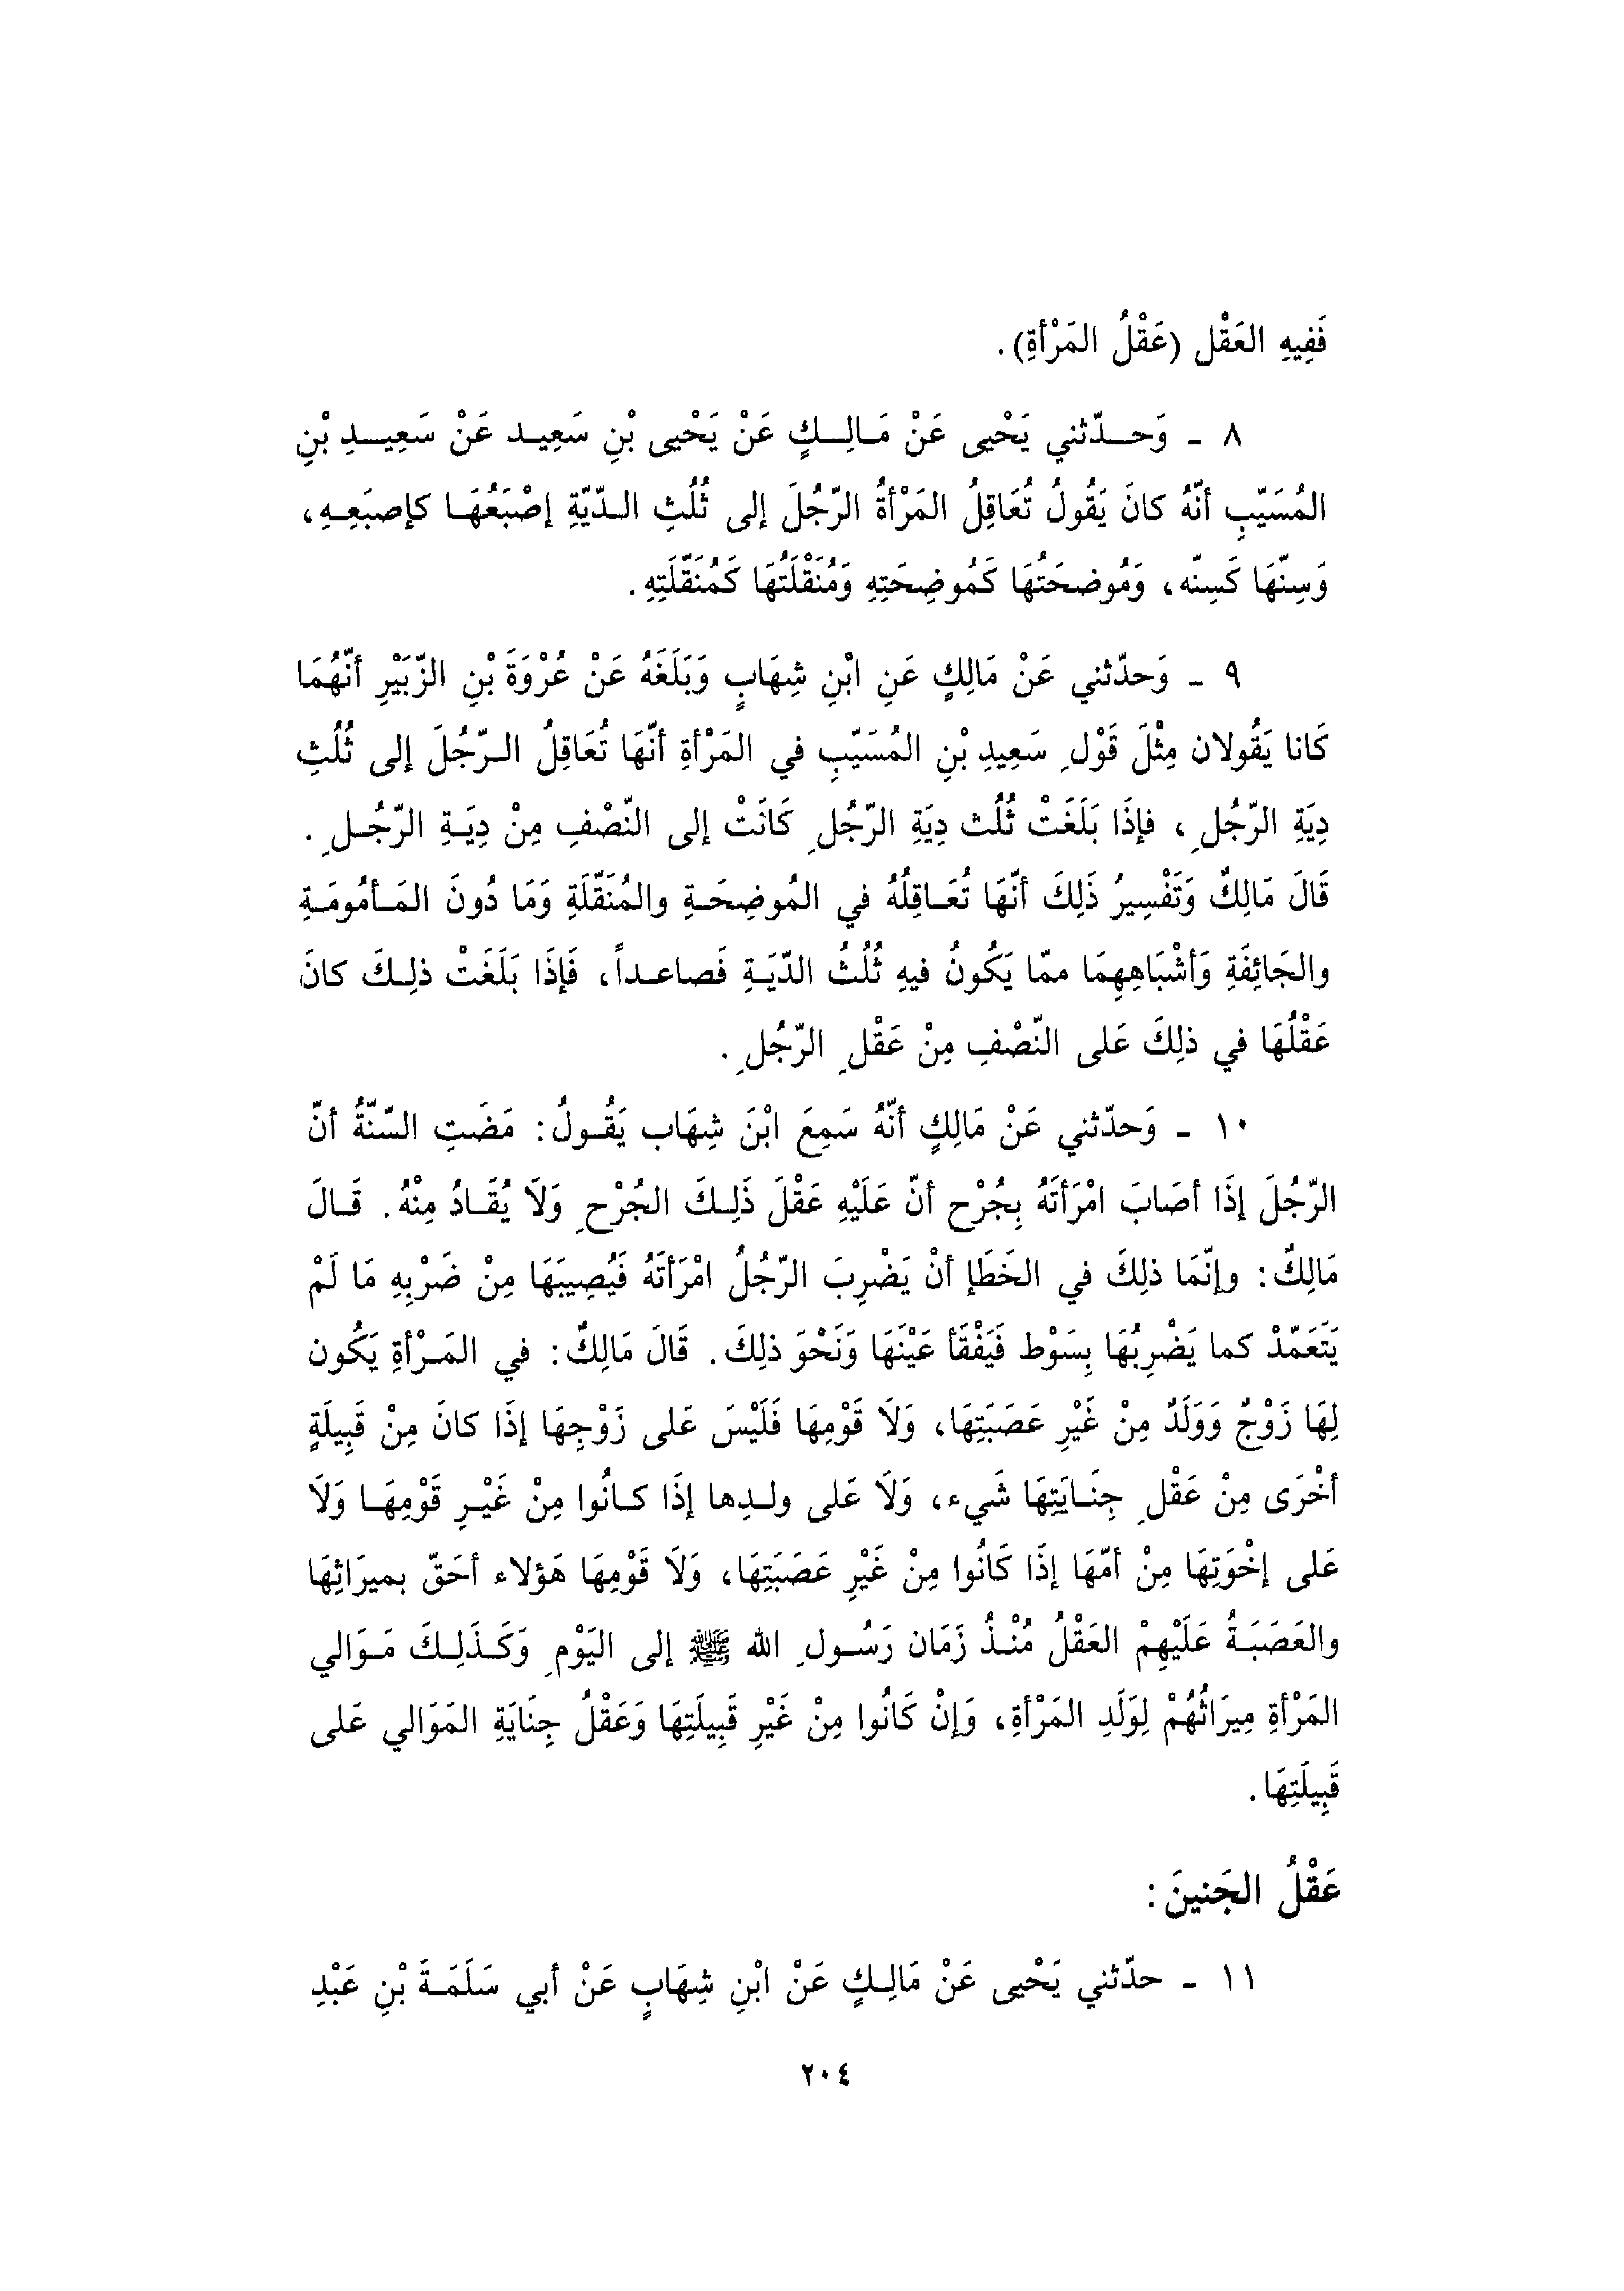 فَفِيهِ العَقْل (عَقْلُ المَرْأةِ).
٨ ـ وَحدّثني يَحْيى عَنْ مَالِكٍ عَنْ يَحْيى بْنِ سَعِيد عَنْ سَعِيدِ بْنِ
المُسَيّبِ أنّهُ كانَ يَقُولُ تُعَاقِلُ المَرْأةُ الرّجُلَ إلى ثُلُثِ الدّيّةِ إصْبَعُهَا كإصبَعِهِ،
وَسِنّهَا كَسِنّه، وَمُوضحَتُهَا كَمُوضِحَتِهِ وَمُنَقْلَتُهَا كَمُنَقّلَتِهِ.
٩ ـ وَحدّثني عَنْ مَالِكٍ عَنِ ابْنِ شِهَابٍ وَبَلَغَهُ عَنْ عُرْوَةَ بْنِ الزّبَيْرِ أنّهُمَا
كَانا يَقُولان مِثْلَ قَوْلِ سَعِيدِ بْنِ المُسَيّبِ في المَرْأةِ أنّهَا تُعَاقِلُ الرّجُلَ إلى ثُلُثِ
دِيَةِ الرّجُلِ، فإذَا بَلَغَتْ ثُلُث دِيَةِ الرّجُلِ كَانَتْ إلى النّصْفِ مِنْ دِيَةِ الرّجُلِ.
قَالَ مَالِكٌ وَتَفْسِيرُ ذَلِكَ أنّهَا تُعَاقِلُهُ في المُوضِحَةِ والمُنَقّلَةِ وَمَا دُونَ المَأمُومَةِ
والجَائِفَةِ وَأشْبَاهِهِمَا ممّا يَكُونُ فيهِ ثُلُثُ الدّيَةِ فَصاعداً، فَإذَا بَلَغَتْ ذلِكَ كانَ
عَقْلُهَا في ذلِكَ عَلى النّصْفِ مِنْ عَقْلِ الرّجُلِ.
١٠ ـ وَحدّثني عَنْ مَالِكٍ أنّهُ سَمِعَ ابْنَ شِهَاب يَقُولُ: مَضَتِ السّنّةُ أنّ
الرّجُلَ إذَا أصَابَ امْرَأتَهُ بِجُرْح أنّ عَلَيْهِ عَقْلَ ذَلِكَ الجُرْحِ وَلَا يُقَادُ مِنْهُ. قَالَ
مَالِكٌ: وإنّمَا ذلِكَ في الخَطَإ أنْ يَضْرِبَ الرّجُلُ امْرَأتَهُ فَيُصِيبَهَا مِنْ ضَرْبِهِ مَا لَمْ
يَتَعَمّدْ كما يَضْرِبُهَا بِسَوْط فَيَفْقَأ عَيْنَهَا وَنَحْوَ ذلِكَ. قَالَ مَالِكٌ: في المَرْأةِ يَكُون
لِهَا زَوْجٌ وَوَلَدٌ مِنْ غَيْرِ عَصَبَتِهَا، وَلَا قَوْمِهَا فَلَيْسَ عَلى زَوْجِهَا إذَا كانَ مِنْ قَبِيلَةٍ
أخْرَى مِنْ عَقْلِ جِنَايَتِهَا شَيء، وَلَا عَلى ولدِها إذَا كانُوا مِنْ غَيْرِ قَوْمِهَا وَلَا
عَلى إخْوَتِهَا مِنْ أمّهَا إذَا كَانُوا مِنْ غَيْرِ عَصَبَتِهَا، وَلَا قَوْمِهَا هَؤلاء أحَقّ بميرَاثِهَا
والعَصَبَةُ عَلَيْهِمْ العَقْلُ مُنْذُ زَمَان رَسُولِ الله ﷺ إلى اليَوْمِ وَكَذَلِكَ مَوَالي
المَرْأةِ مِيرَاثُهُمْ لِوَلَدِ المَرْأةِ، وَإنْ كَانُوا مِنْ غَيْرِ قَبِيلَتِهَا وَعَقْلُ جِنَايَةِ المَوَالي عَلى
قَبِيلَتِهَا.
عَقْلُ الجَنينَ:
١١ ـ حدّثني يَحْيى عَنْ مَالِكٍ عَنْ ابْنِ شِهَابٍ عَنْ أبي سَلَمَةَ بْنِ عَبْدِ
٢٠٤